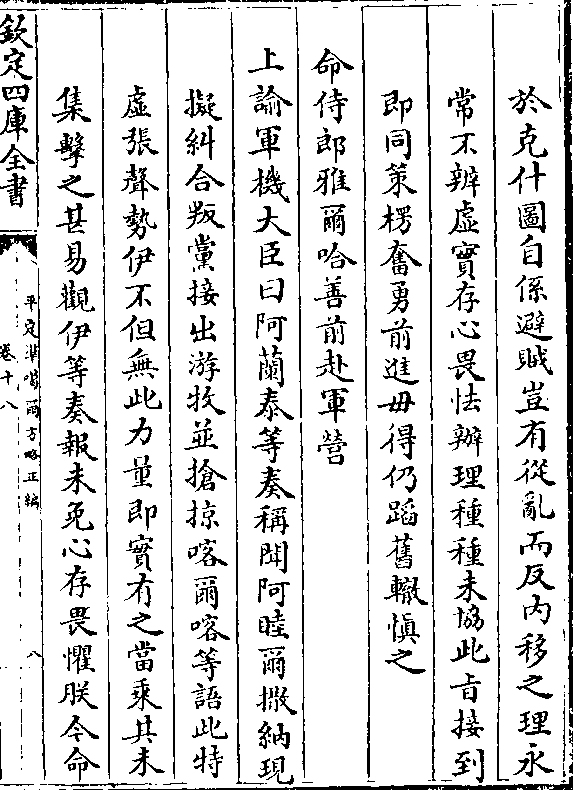 於克什圖自係避賊豈有從亂而反内移之理永
常不辨虚實存心畏怯辦理種種未協此旨接到
即同策楞奮勇前進毋得仍蹈舊轍慎之
命侍郎雅爾哈善前赴軍營
上諭軍機大臣曰阿蘭泰等奏稱聞阿睦爾撒納現
擬糾合叛黨接出游牧並搶掠喀爾喀等語此特
虚張聲勢伊不但無此力量即實有之當乘其未
集擊之甚易觀伊等奏報未免心存畏懼朕今命
欽定四庫全書
平定準噶爾方略正編
卷十八
八